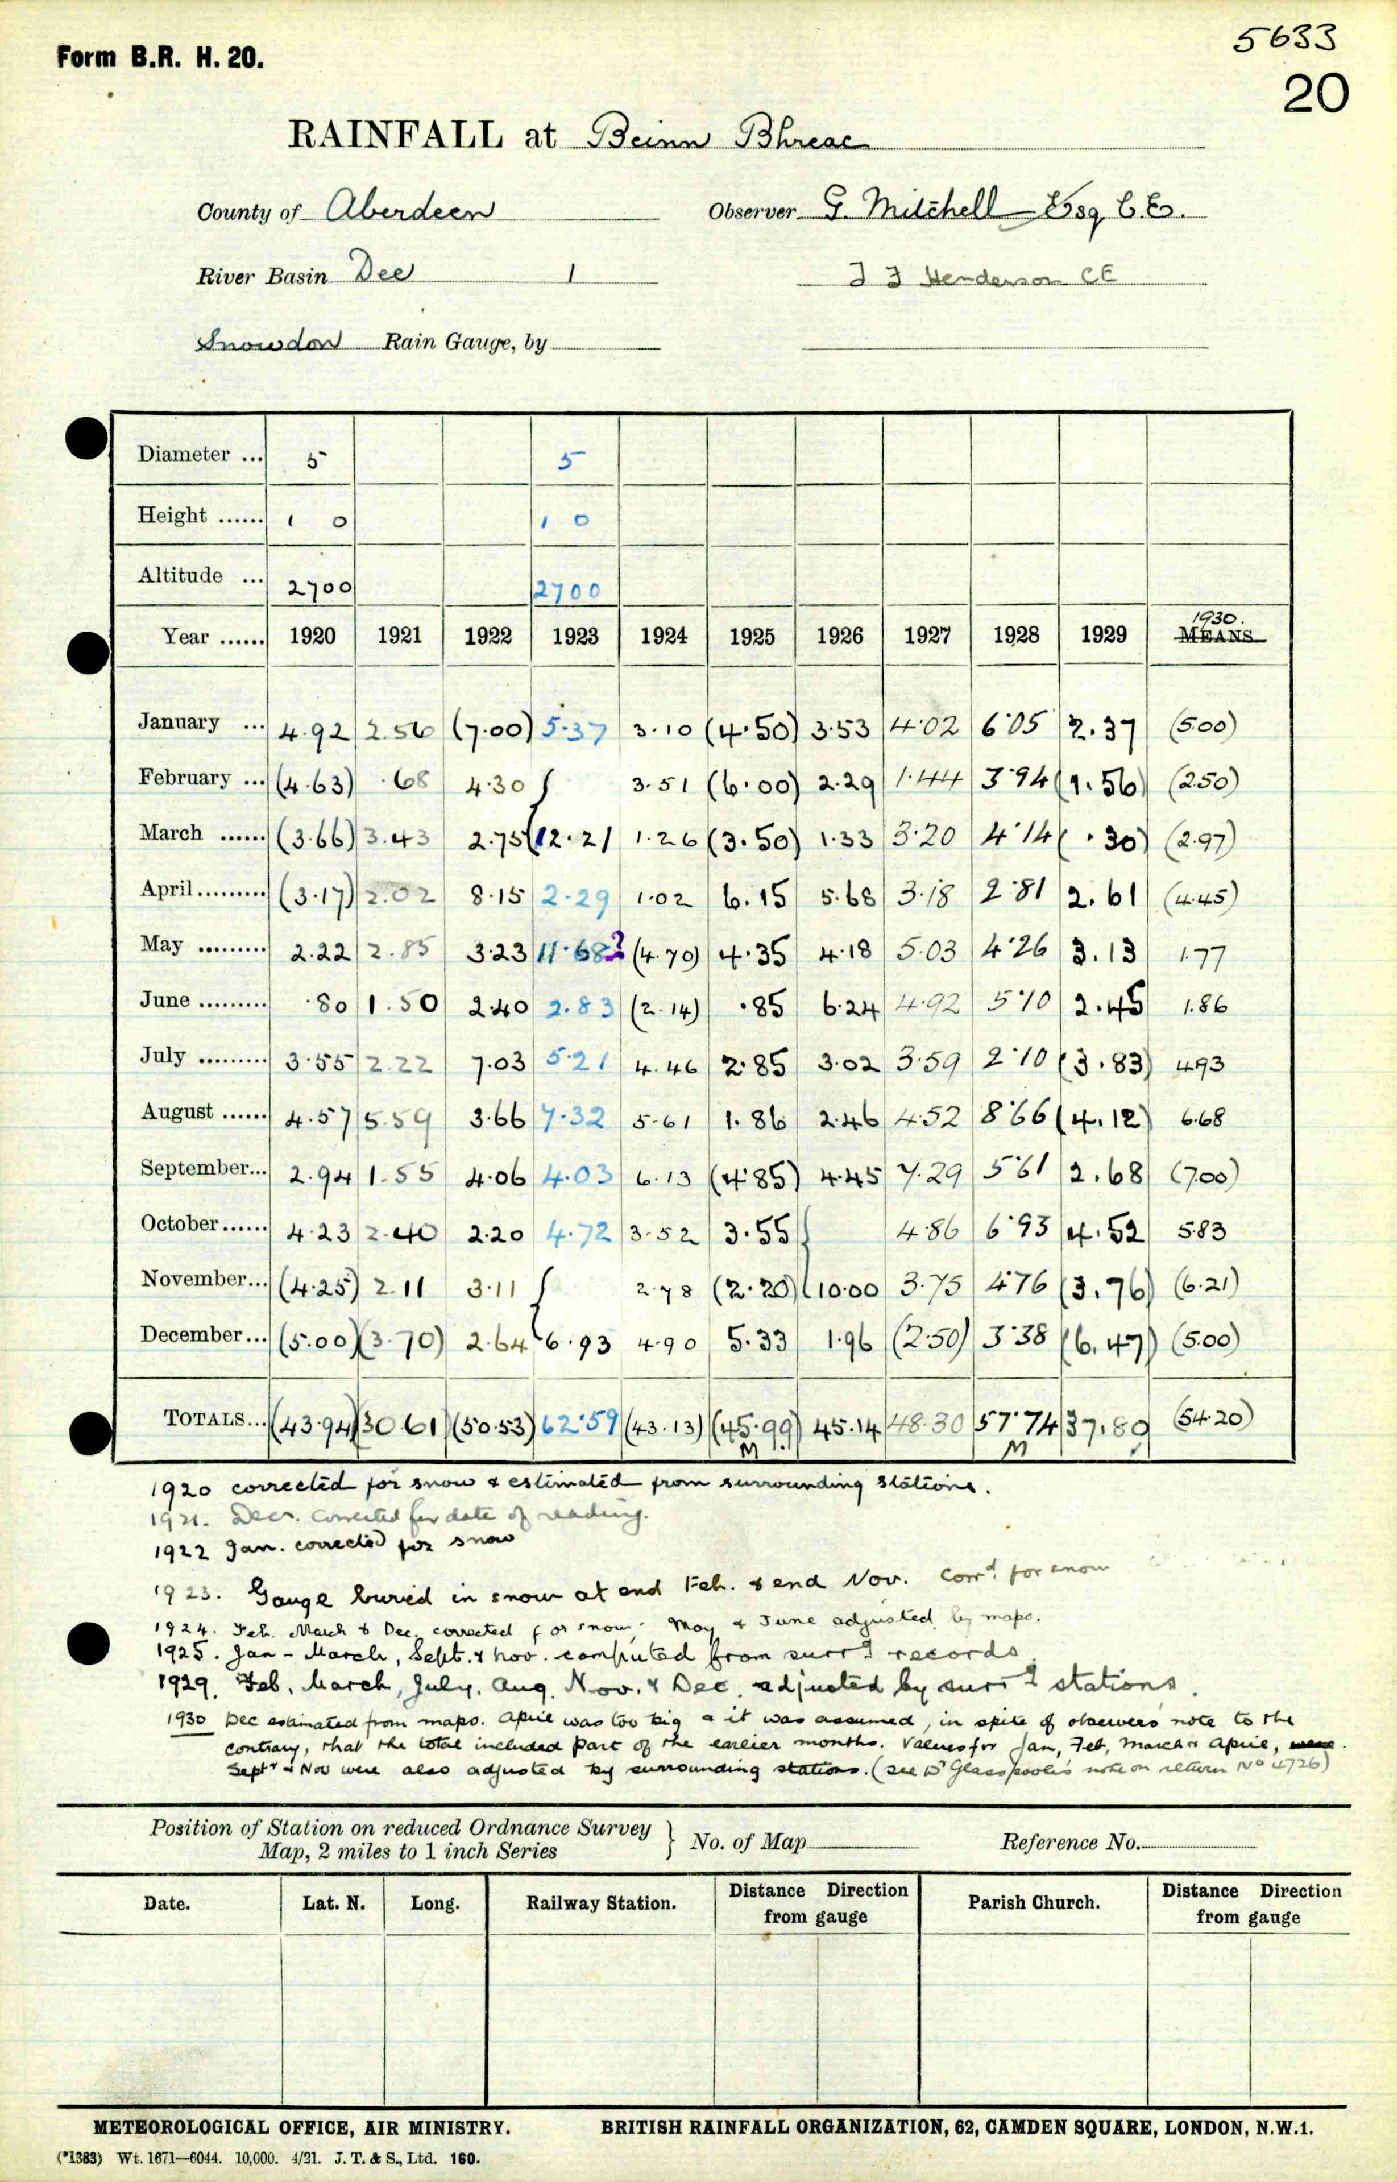 5633
Form B.R. H. 20.
20
RAINFALL at Beinn Bhreac
County of Aberdeen Observer G. Mitchell Esq C.E.
River Basin Dee 1 J J Henderson CE
Snowdon Rain Gauge, by
Diameter ... 5 5
Height ...... 1 0 1 0
Altitude ... 2700 2700
1930.
Year ...... 1920 1921 1922 1923 1924 1925 1926 1927 1928 1929 MEANS
January ... 4.92 2.56 (7.00) 5.37 3.10 (4.50) 3.53 4.02 6.05 2.37 (5.00)
February ... (4.63) .68 4.30 { 3.51 (6.00) 2.29 1.44 3.94 (1.56) (2.50)
March ...... (3.66) 3.43 2.75 (12.21 1.26 (3.50) 1.33 3.20 4.14 (.30) (2.97)
April ......... (3.17) 2.02 8.15 2.29 1.02 6.15 5.68 3.18 2.81 2.61 (4.45)
May ......... 2.22 2.85 3.23 11.68? (4.70) 4.35 4.18 5.03 4.26 3.13 1.77
June ......... .80 1.50 2.40 2.83 (2.14) .85 6.24 4.92 5.10 2.45 1.86
July ......... 3.55 2.22 7.03 5.21 4.46 2.85 3.02 3.59 2.10 (3.83) 4.93
August ...... 4.57 5.59 3.66 7.32 5.61 1.86 2.46 4.52 8.66 (4.12) 6.68
September... 2.94 1.55 4.06 4.03 6.13 (4.85) 4.45 7.29 5.61 2.68 (7.00)
October ...... 4.23 2.40 2.20 4.72 3.52 3.55 { 4.86 6.93 4.52 5.83
November... (4.25) 2.11 3.11 { 2.78 (2.20) 10.00 3.75 4.76 (3.76) (6.21)
December... (5.00) (3.70) 2.64 6.93 4.90 5.33 1.96 (2.50) 3.38 (6.47) (5.00)
TOTALS... (43.94) (30.61) (50.53) 62.59 (43.13) (45.99) 45.14 48.30 57.74 37.80 (54.20)
M M
1920 corrected for snow & estimated from surrounding stations.
1921. Decr. corrected for date of reading.
1922 Jan. corrected for snow
1923. Gauge buried in snow at end Feb. & end Nov. Corrd. for snow
1924. Feb. March & Dec. corrected for snow; May & June adjusted by maps.
1925. Jan - March, Sept. & Nov. computed from surrg records
1929. Feb, March, July, Aug, Nov. & Dec. adjusted by surrg stations.
1930 Dec estimated from maps. April was too big & it was assumed, in spite of observers note to the
contrary, that the total included part of the earlier months. Values for Jan, Feb, March & April,
Septr & Nov were also adjusted by surrounding stations. (see Dr Glasspoole's note on return No 4726)
Position of Station on reduced Ordnance Survey
Map, 2 miles to 1 inch Series } No. of Map Reference No.
Date. Lat. N. Long. Railway Station. Distance Direction from gauge Parish Church. Distance Direction from gauge
METEOROLOGICAL OFFICE, AIR MINISTRY. BRITISH RAINFALL ORGANIZATION, 62, CAMDEN SQUARE, LONDON, N.W.1.
(*1383) Wt. 1671—6044. 10,000. 4/21. J. T. & S., Ltd. 160.